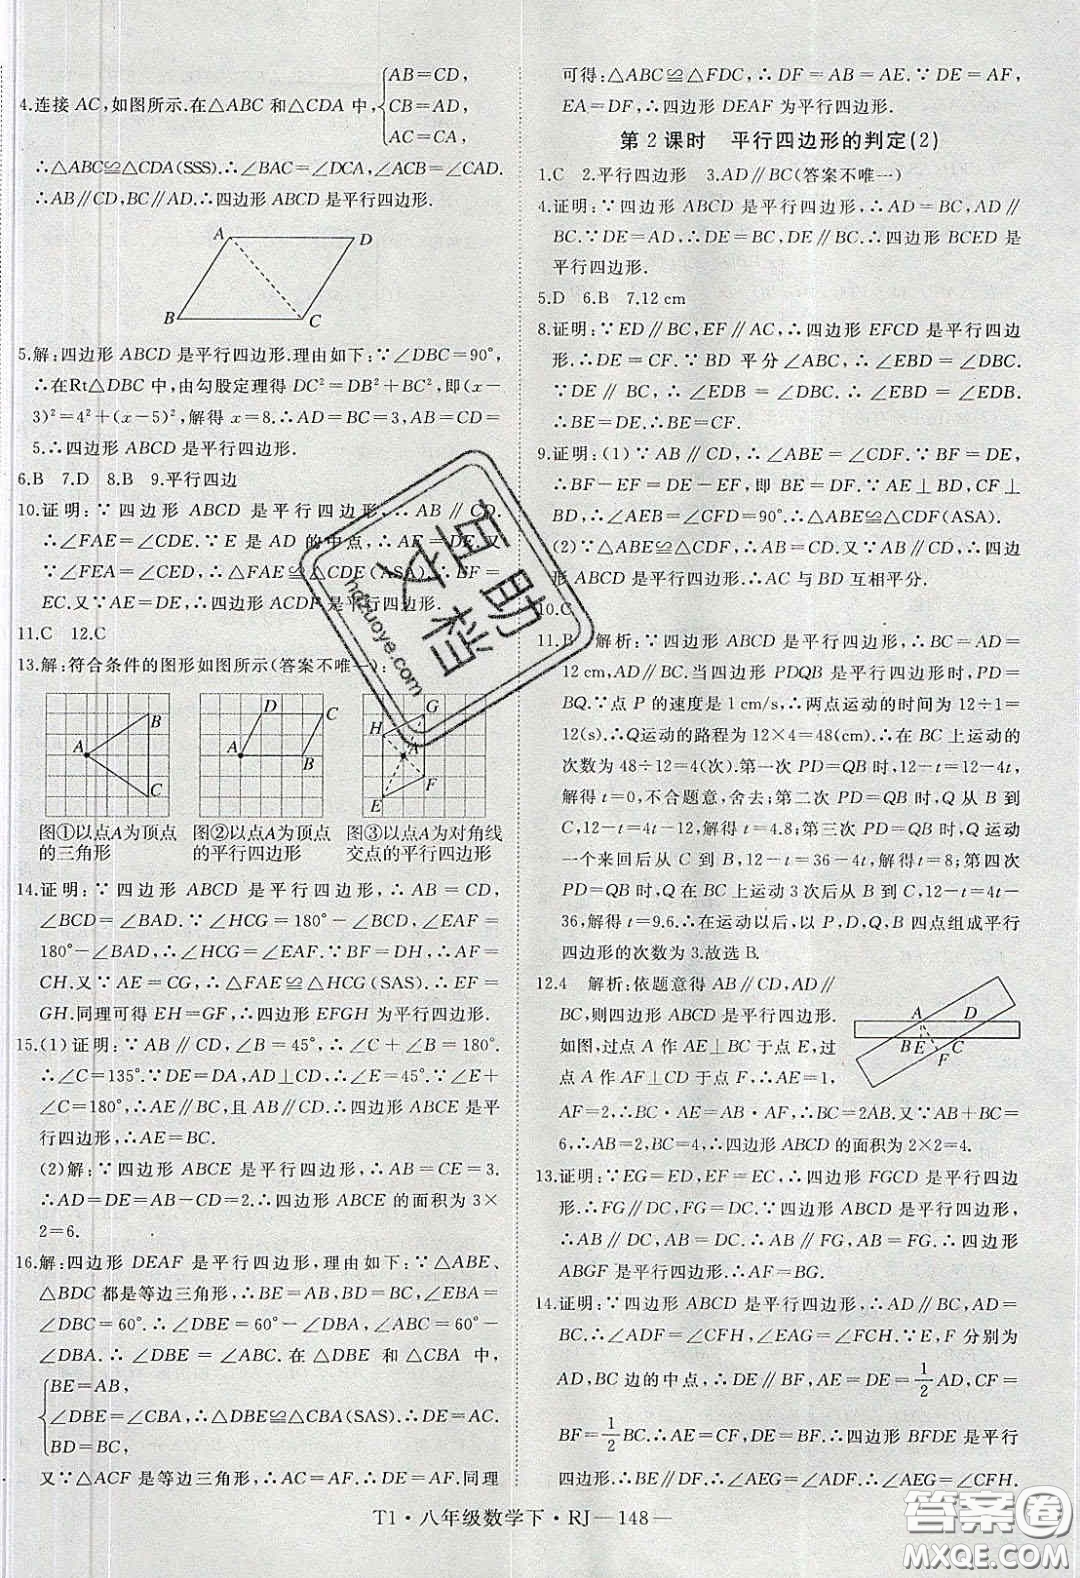 4.连接 AC,如图所示.在△ABC 和△CDA 中,
AB=CD,
CB=AD,
AC=CA,
∴△ABC≌△CDA(SSS).∴∠BAC=∠DCA,∠ACB=∠CAD.
∴AB∥CD,BC∥AD.∴四边形 ABCD 是平行四边形.
A D
B C
5.解:四边形 ABCD 是平行四边形.理由如下:∵∠DBC=90°,
∴在Rt△DBC 中,由勾股定理得 DC²=DB²+BC²,即(x-
3)²=4²+(x-5)²,解得 x=8.∴AD=BC=3,AB=CD=
5.∴四边形 ABCD 是平行四边形.
6.B 7.D 8.B 9.平行四边
10.证明:∵四边形 ABCD 是平行四边形,∴AB∥CD.
∴∠FAE=∠CDE.∵E 是 AD 的中点,∴AE=DE.又
∵∠FEA=∠CED,∴△FAE≌△CDE(ASA).∴EF=
EC.又∵AE=DE,∴四边形 ACDF 是平行四边形.
11.C 12.C
13.解:符合条件的图形如图所示(答案不唯一):
B
A
C
D C
A B
G
H
A
F
E
图①以点A为顶点
的三角形
图②以点A为顶点
的平行四边形
图③以点A为对角线
交点的平行四边形
14.证明:∵四边形 ABCD 是平行四边形,∴AB=CD,
∠BCD=∠BAD.∵∠HCG=180°-∠BCD,∠EAF=
180°-∠BAD,∴∠HCG=∠EAF.∵BF=DH,∴AF=
CH.又∵AE=CG,∴△FAE≌△HCG(SAS).∴EF=
GH.同理可得 EH=GF,∴四边形 EFGH 为平行四边形.
15.(1)证明:∵AB∥CD,∠B=45°,∴∠C+∠B=180°.
∴∠C=135°.∵DE=DA,AD⊥CD,∴∠E=45°.∵∠E+
∠C=180°,∴AE∥BC,且 AB∥CD.∴四边形 ABCE 是平
行四边形,∴AE=BC.
(2)解:∵四边形 ABCE 是平行四边形,∴AB=CE=3.
∴AD=DE=AB-CD=2.∴四边形 ABCE 的面积为 3×
2=6.
16.解:四边形 DEAF 是平行四边形,理由如下:∵△ABE、
△BDC 都是等边三角形,∴BE=AB,BD=BC,∠EBA=
∠DBC=60°.∴∠DBE=60°-∠DBA,∠ABC=60°-
∠DBA.∴∠DBE=∠ABC.在△DBE 和△CBA 中,
BE=AB,
∠DBE=∠CBA,∴△DBE≌△CBA(SAS).∴DE=AC.
BD=BC,
又∵△ACF 是等边三角形,∴AC=AF.∴DE=AF.同理
可得:△ABC≌△FDC,∴DF=AB=AE.∵DE=AF,
EA=DF,∴四边形 DEAF 为平行四边形.
第 2 课时 平行四边形的判定(2)
1.C 2.平行四边形 3.AD∥BC(答案不唯一)
4.证明:∵四边形 ABCD 是平行四边形,∴AD=BC,AD∥
BC.∵DE=AD,∴DE=BC,DE∥BC.∴四边形 BCED 是
平行四边形.
5.D 6.B 7.12 cm
8.证明:∵ED∥BC,EF∥AC,∴四边形 EFCD 是平行四边
形.∴DE=CF.∵BD 平分∠ABC,∴∠EBD=∠DBC.
∵DE∥BC,∴∠EDB=∠DBC.∴∠EBD=∠EDB.
∴BE=DE.∴BE=CF.
9.证明:(1)∵AB∥CD,∴∠ABE=∠CDF.∵BF=DE,
∴BF-EF=DE-EF,即 BE=DF.∵AE⊥BD,CF⊥
BD,∴∠AEB=∠CFD=90°.∴△ABE≌△CDF(ASA).
(2)∵△ABE≌△CDF,∴AB=CD.又∵AB∥CD,∴四边
形 ABCD 是平行四边形.∴AC 与 BD 互相平分.
10.C
11.B 解析:∵四边形 ABCD 是平行四边形,∴BC=AD=
12 cm,AD∥BC.当四边形 PDQB 是平行四边形时,PD=
BQ.∵点 P 的速度是 1 cm/s,∴两点运动的时间为 12÷1=
12(s).∴Q运动的路程为 12×4=48(cm).∴在 BC 上运动的
次数为 48÷12=4(次).第一次 PD=QB 时,12-t=12-4t,
解得 t=0,不合题意,舍去;第二次 PD=QB 时,Q 从 B 到
C,12-t=4t-12,解得 t=4.8;第三次 PD=QB 时,Q 运动
一个来回后从 C 到 B,12-t=36-4t,解得 t=8;第四次
PD=QB 时,Q 在 BC 上运动 3 次后从 B 到 C,12-t=4t-
36,解得 t=9.6.∴在运动以后,以 P,D,Q,B 四点组成平行
四边形的次数为 3.故选 B.
12.4 解析:依题意得 AB∥CD,AD∥
BC,则四边形 ABCD 是平行四边形.
如图,过点 A 作 AE⊥BC 于点 E,过
点 A 作 AF⊥CD 于点 F,∴AE=1,
A D
B E F C
AF=2,∴BC·AE=AB·AF,∴BC=2AB.又∵AB+BC=
6,∴AB=2,BC=4.∴四边形 ABCD 的面积为 2×2=4.
13.证明:∵EG=ED,EF=EC,∴四边形 FGCD 是平行四边
形.∴FG∥DC,FG=DC.∵四边形 ABCD 是平行四边形,
∴AB∥DC,AB=DC.∴AB∥FG,AB=FG.∴四边形
ABGF 是平行四边形.∴AF=BG.
14.证明:∵四边形 ABCD 是平行四边形,∴AD∥BC,AD=
BC.∴∠ADF=∠CFH,∠EAG=∠FCH.∵E,F 分别为
AD,BC 边的中点,∴DE∥BF,AE=DE=1/2AD,CF=
BF=1/2BC.∴AE=CF=DE=BF.∴四边形 BFDE 是平行
四边形.∴BE∥DF.∴∠AEG=∠ADF.∴∠AEG=∠CFH.
T1·八年级数学下·RJ—148—
百助文档
hdzuoye.com
答案圈
MXQE.COM